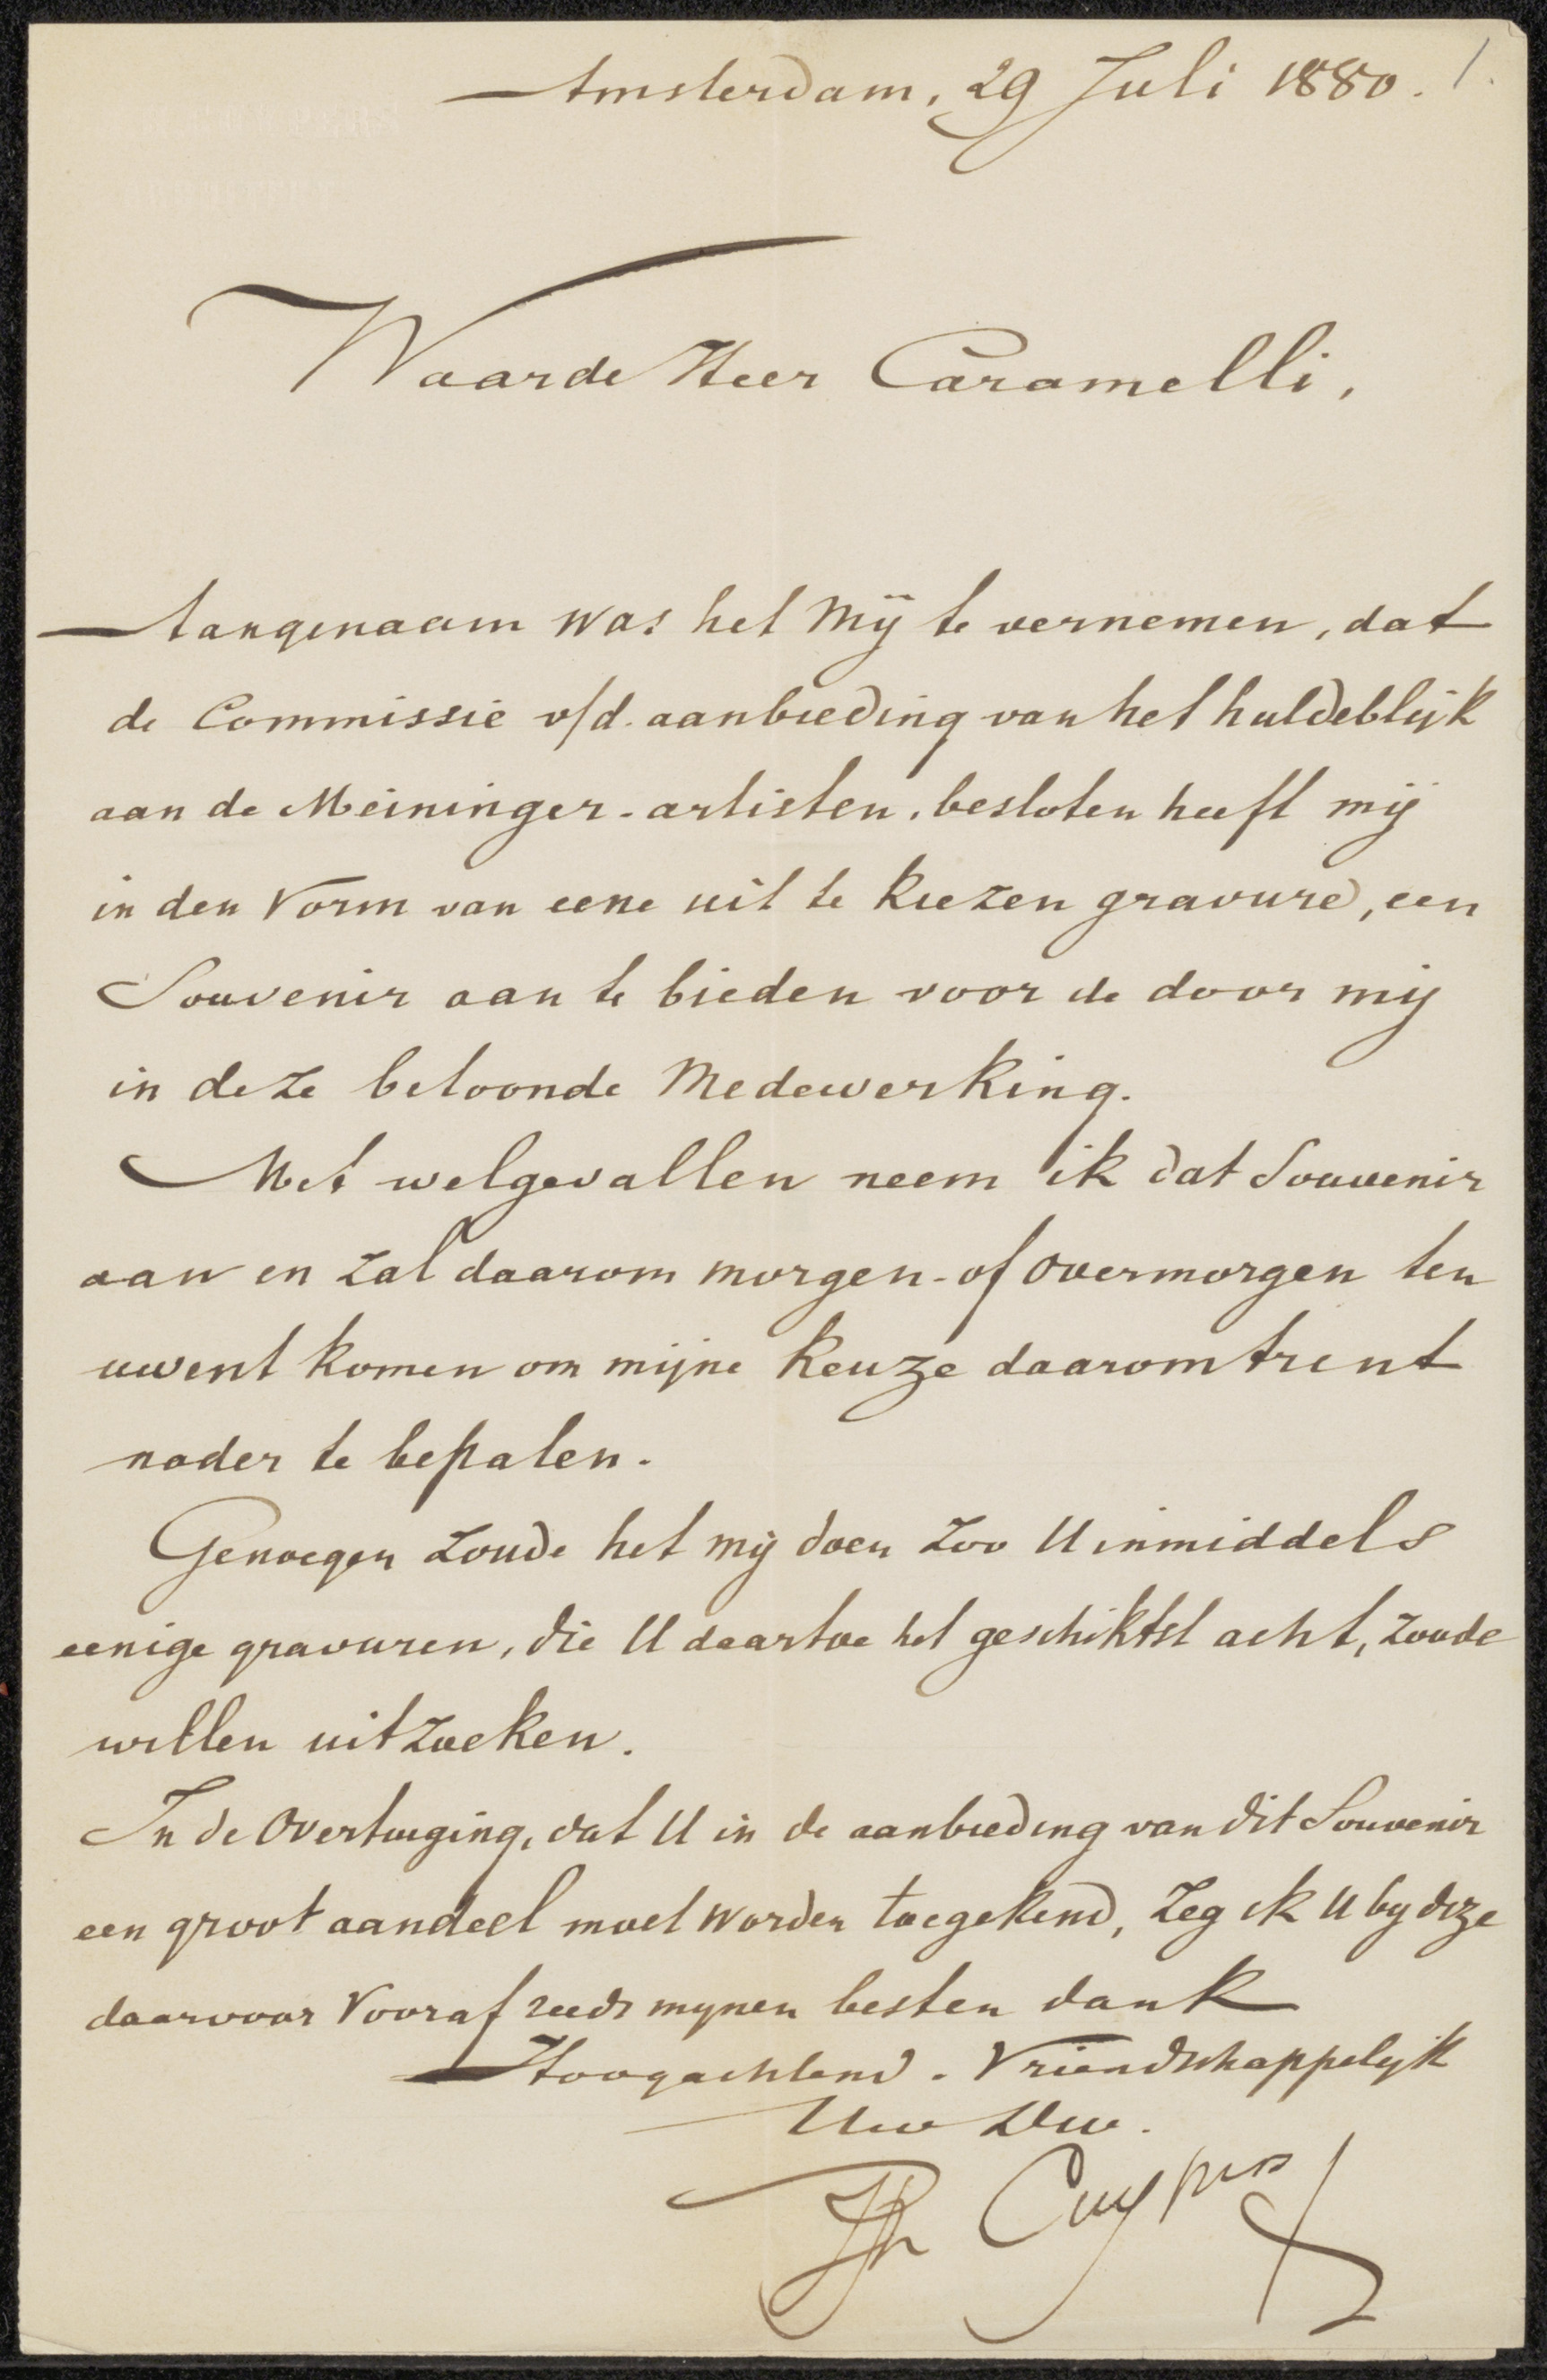 Amsterdam, 29 Juli 1880. 1.
Waarde Heer Caramelli,
Aangenaam was het mij te vernemen, dat
de Commissie v/d. aanbieding van het huldeblijk
aan de Meininger-artisten, besloten heeft mij
in den Vorm van eene uit te kiezen gravure, een
Souvenir aan te bieden voor de door mij
in deze betoonde Medewerking.
Met welgevallen neem ik dat Souvenir
aan en zal daarom morgen- of overmorgen ten
uwent komen om mijne Keuze daaromtrent
nader te bepalen.
Genoegen zoude het mij doen zoo U inmiddels
eenige gravuren, die U daartoe het geschiktst acht, zoude
willen uitzoeken.
In de Overtuiging, dat U in de aanbieding van dit Souvenir
een groot aandeel moet worden toegekend, zeg ik U by deze
daarvoor Vooraf reeds mynen besten dank
Hoogachtend. Vriendschappelijk
Uw Dw.
Th Cuypers